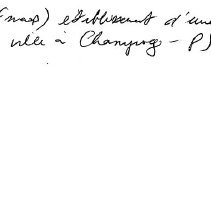 (max) établissement d'une
ville à Champrog - P)